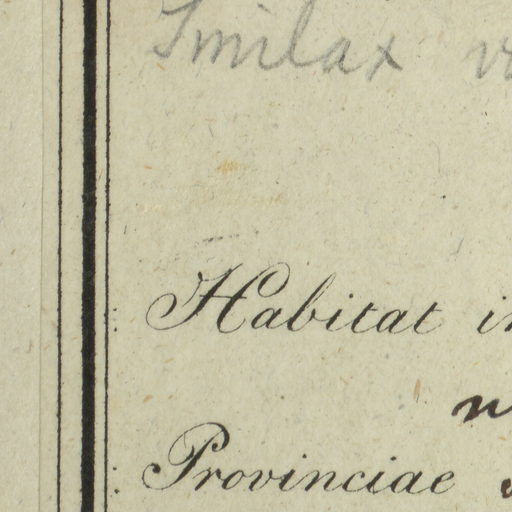 Smilax
Habitat
Provinciae